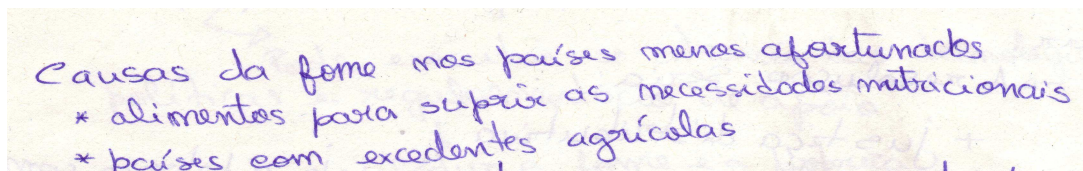 Causas da fome nos países menos afortunados
* alimentos para suprir as necessidades nutricionais
* países com excedentes agrícolas